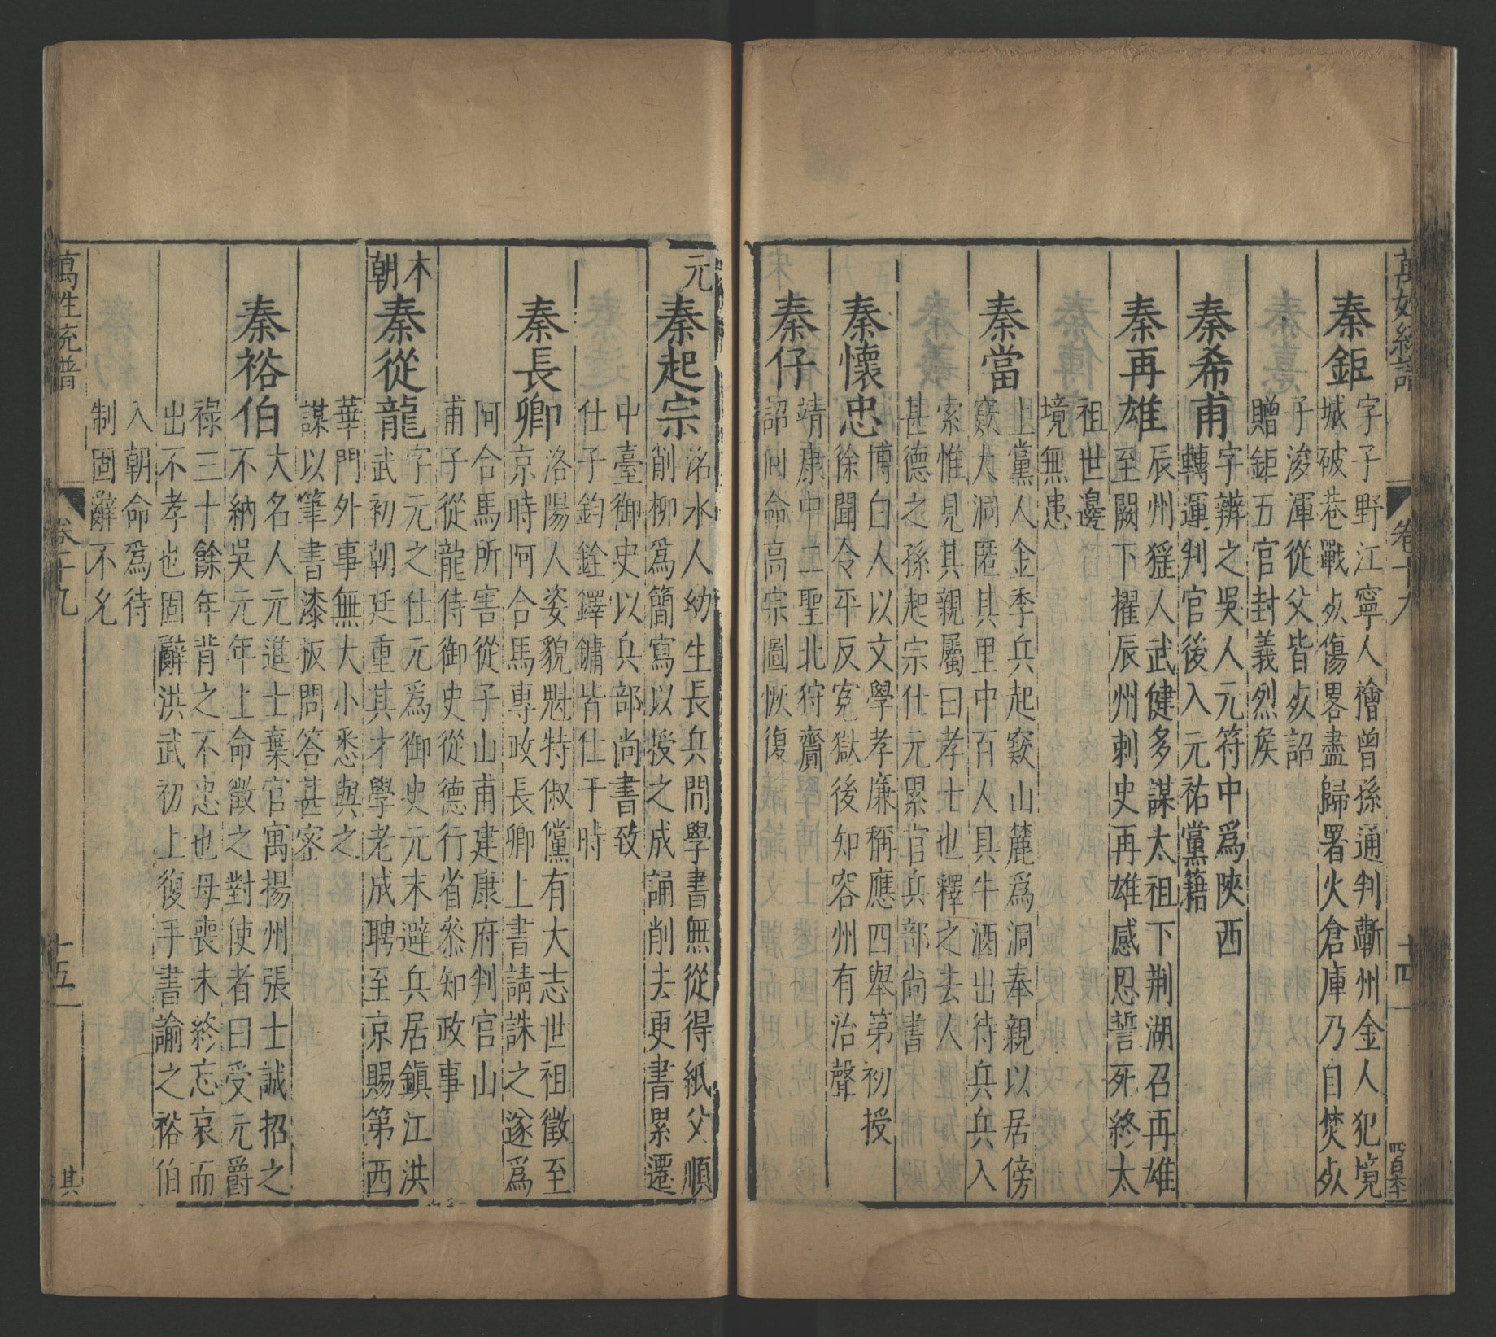 萬姓統譜 卷十九 十四
秦鉅
字子野江寧人檜曾孫通判蘄州金人犯境
城破巷戰死傷畧盡歸署火倉庫乃自焚死
子浚渾從父皆死詔
贈鉅五官封義烈矦
秦希甫
字辨之吳人元符中爲陝西
轉運判官後入元祐黨籍
秦再雄
辰州猺人武健多謀太祖下荆湖召再雄
至闕下擢辰州刺史再雄感恩誓死終太
祖世邊
境無患
秦當
上黨人金季兵起竄山麓爲洞奉親以居傍
竄大洞匿其里中百人具牛酒出待兵兵入
索惟見其親屬曰孝士也釋之去人
甚德之孫起宗仕元累官兵部尚書
秦懷忠
博白人以文學孝廉稱應四舉第初授
徐聞令平反寃獄後知容州有治聲
秦仔
靖康中二聖北狩齎
詔間命高宗圖恢復
元
秦起宗
洺水人幼生長兵問學書無從得紙父順
削柳爲簡寫以授之成誦削去更書累遷
中臺御史以兵部尚書致
仕子鈞銓鐸鏞皆仕于時
秦長卿
洛陽人姿貌魁特俶儻有大志世祖徵至
京時阿合馬專政長卿上書請誅之遂爲
阿合馬所害從子山甫建康府判官山
甫子從龍侍御史從德行省叅知政事
本朝
秦從龍
字元之仕元爲御史元末避兵居鎮江洪
武初朝廷重其才學老成聘至京賜第西
華門外事無大小悉與之
謀以筆書漆板問答甚密
秦裕伯
大名人元進士棄官寓揚州張士誠招之
不納吳元年上命徵之對使者曰受元爵
祿三十餘年背之不忠也母喪未終忘哀而
出不孝也固辭洪武初上復手書諭之裕伯
入朝命爲待
制固辭不允
萬姓統譜 卷十九 十五 其